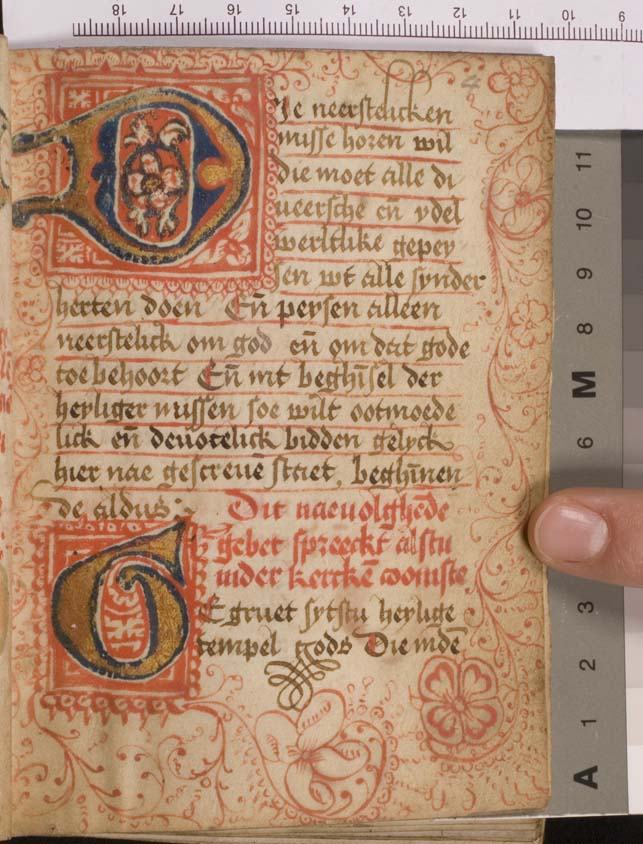 18 17 16 15 14 13 12 11 10 9
4
Die neerstelicken
misse horen wil
die moet alle di
ueersche en̄ ydel
werltlike gepey
sen wt alle synder
herten doen En̄ peysen alleen
neerstelick om god en̄ om dat gode
toe behoort En̄ int beghīsel der
heyliger missen soe wilt ootmoede
lick en̄ deuotelick bidden gelyck
hier nae gescreuē staet, beghīnen
de aldus:
Dit nae uolghēde
gebet sprēeckt alstu
inder kerckē coomste
GEgruet sytstu heylige
tempel gods Die indē
11
10
9
8
M
6
3
2
1
A